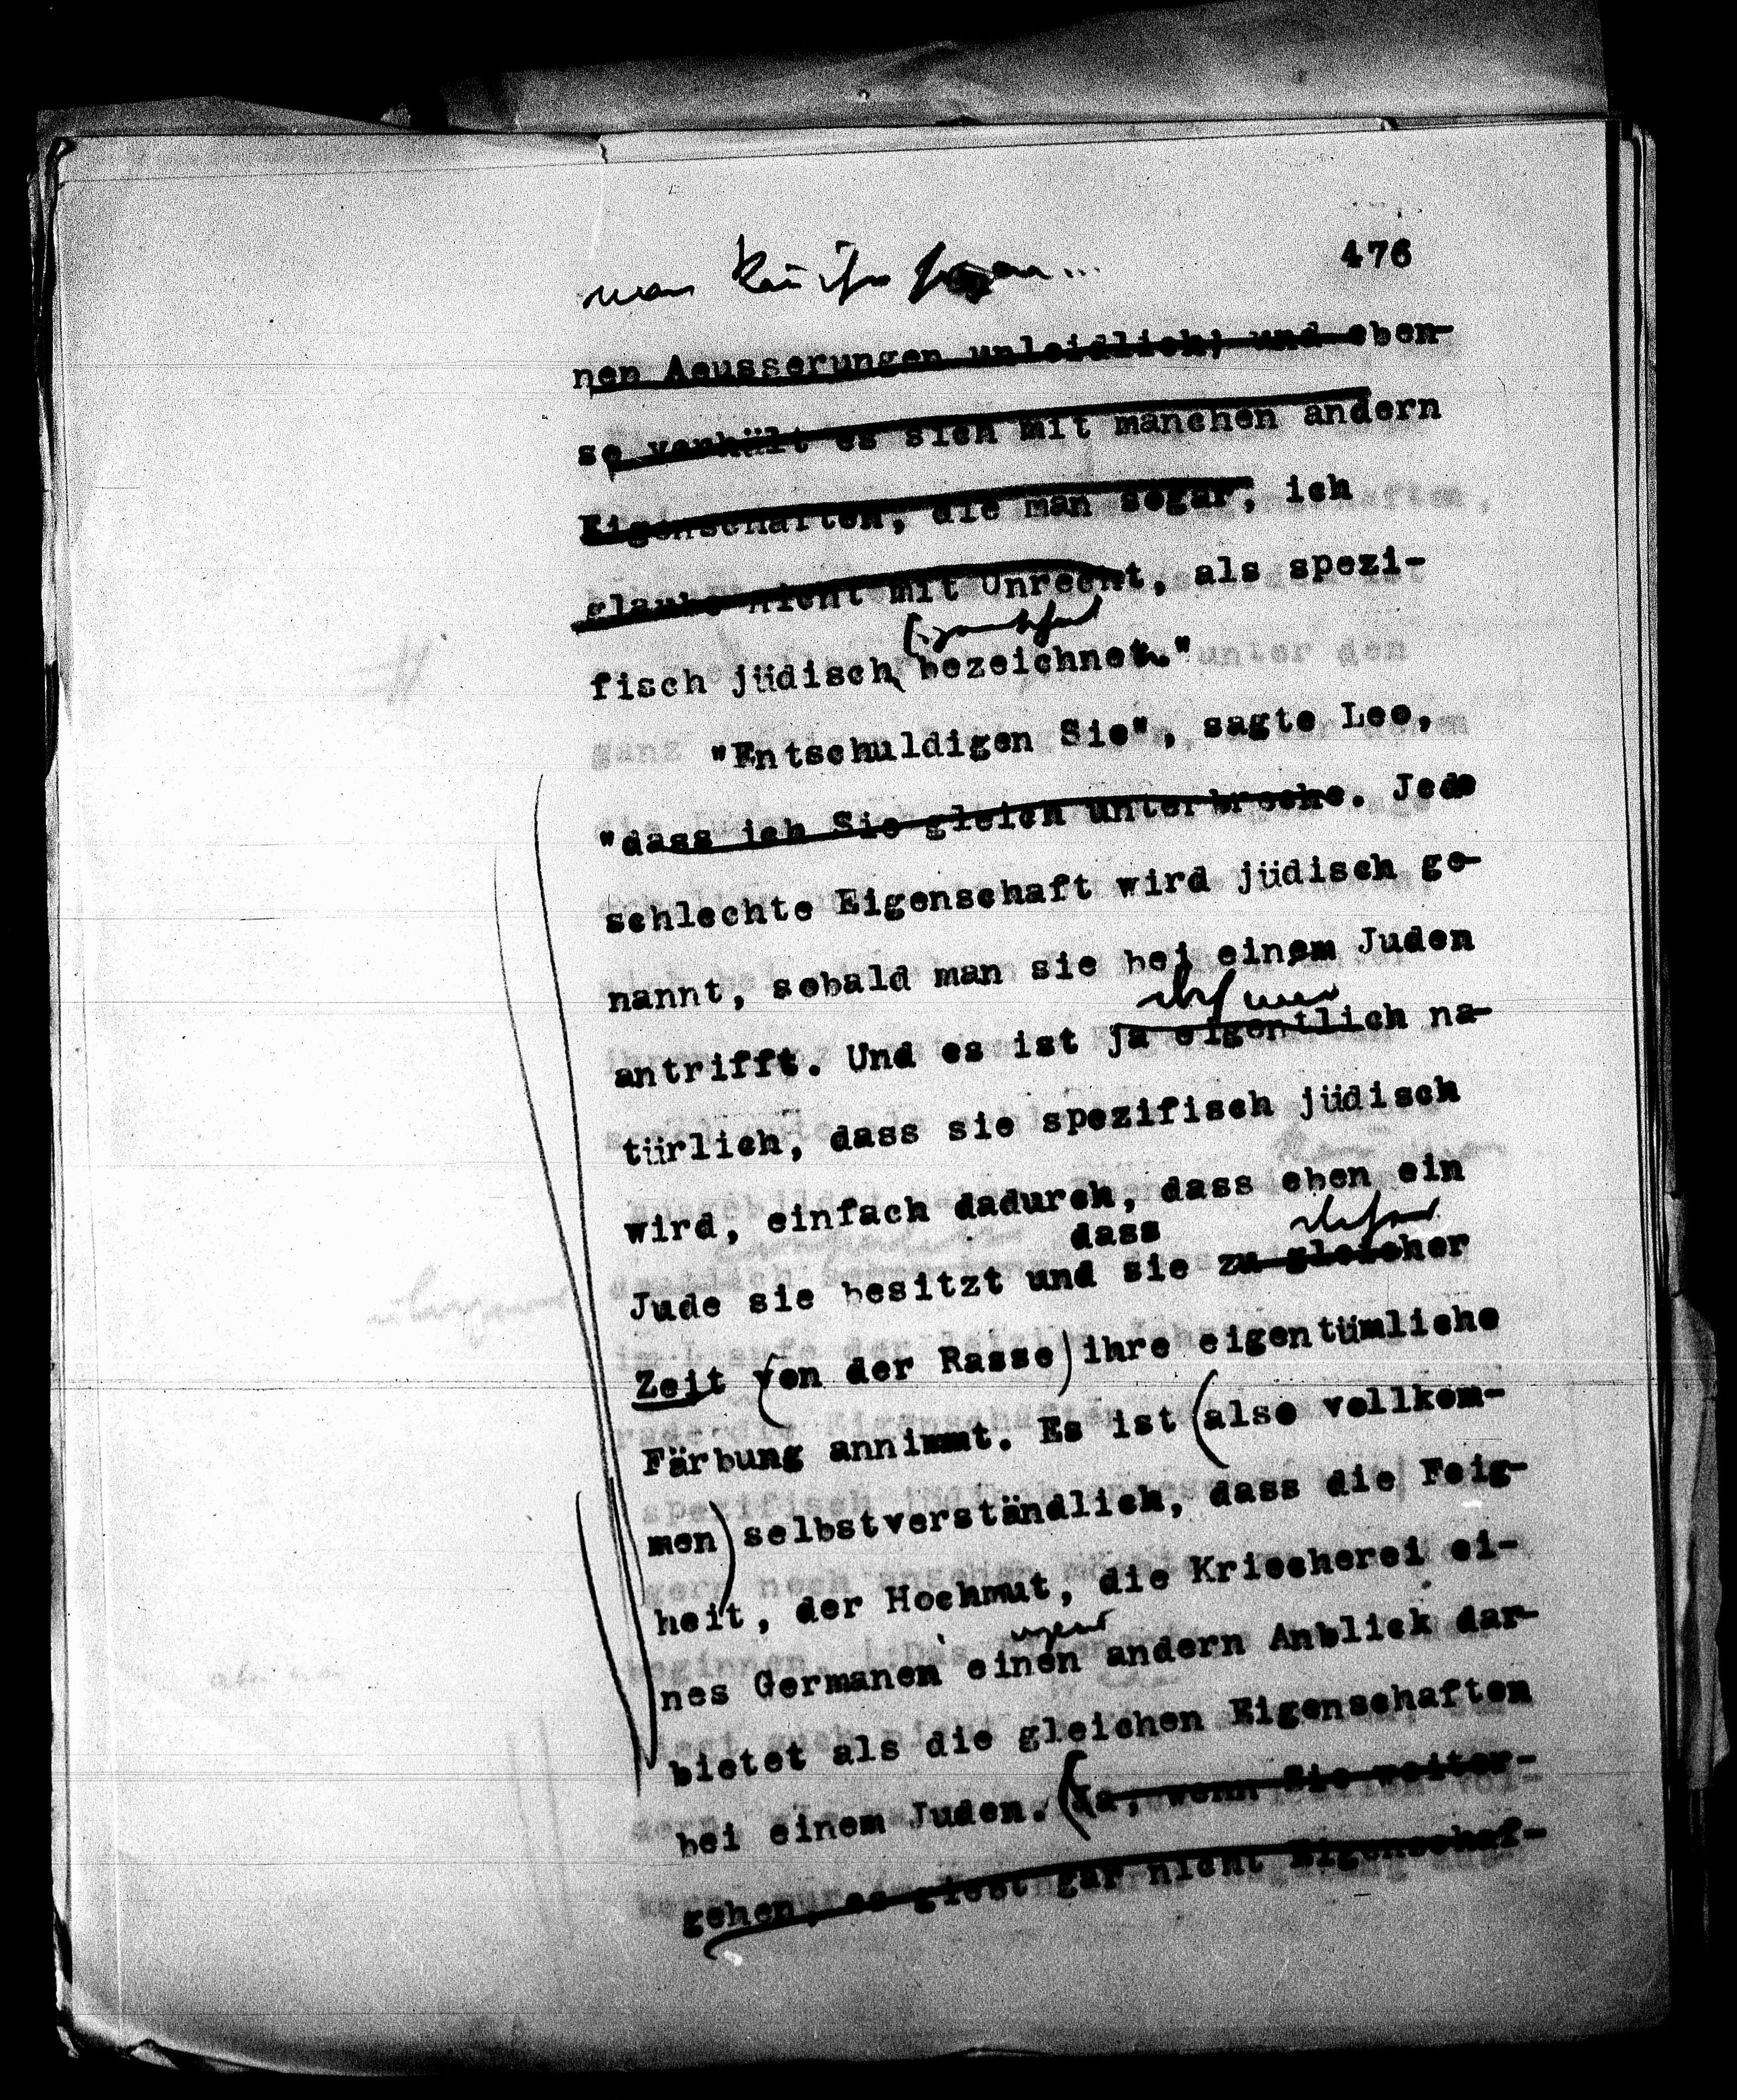 476
man
nen Aeusserungen unleidlich; und eben-
so verhält es sich mit manchen andern
Eigenschaften, die man sogar, ich
glaube nicht mit Unrecht, als spezi-
fisch jüdisch bezeichnet."
"Entschuldigen Sie", sagte Leo,
"dass ich Sie gleich unterbreche. Jede
schlechte Eigenschaft wird jüdisch ge-
nannt, sobald man sie bei einem Juden
antrifft. Und es ist ja eigentlich na-
türlich, dass sie spezifisch jüdisch
wird, einfach dadurch, dass eben ein
dass
Jude sie besitzt und sie zu gleicher
Zeit (von der Rasse) ihre eigentümliche
Färbung annimmt. Es ist (also vollkom-
men) selbstverständlich, dass die Feig-
heit, der Hochmut, die Kriecherei ei-
nes Germanen einen andern Anblick dar-
bietet als die gleichen Eigenschaften
bei einem Juden. (Ja, wenn Sie weiter-
gehen, es giebt gar nicht Eigenschaf-